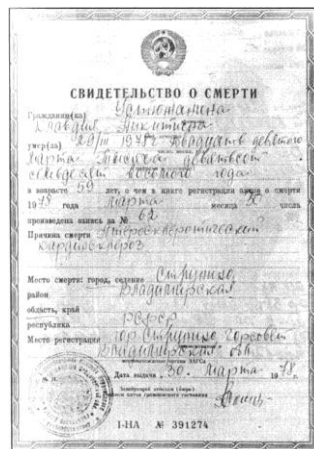 СВИДЕТЕЛЬСТВО О СМЕРТИ
Гражданин(ка) Устюжанина
Клавдия Никитична
умер(ла) 29/III 1978г двадцать девятого
марта тысяча девятьсот
семьдесят восьмого года
в возрасте 59 лет, о чем в книге регистрации актов о смерти
1978 года марта месяца 30 числа
произведена запись за № 62
Причина смерти Атеросклеротический
кардиосклероз
Место смерти: город, селение Струнино,
район Владимирская
область, край
республика РСФСР
Место регистрации гор Струнино горсовет
Владимирская обл.
Дата выдачи 30. марта 1978 г.
М. П.
I-НА № 391274